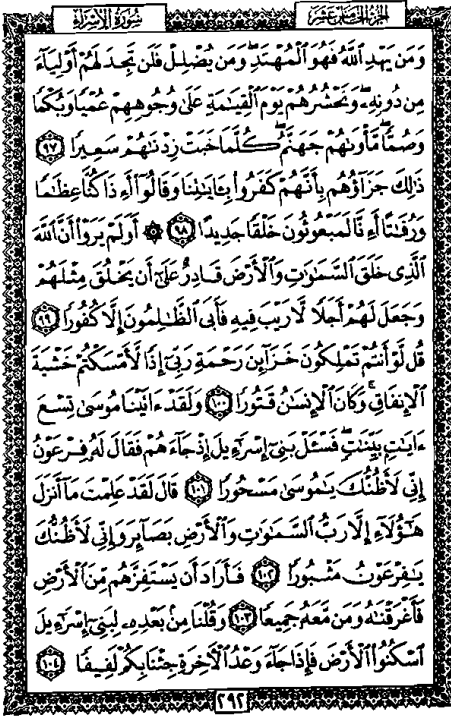 الجزء الخامس عشر
سورة الإسراء
وَمَن يَهْدِ ٱللَّهُ فَهُوَ ٱلْمُهْتَدِ ۖ وَمَن يُضْلِلْ فَلَن تَجِدَ لَهُمْ أَوْلِيَآءَ
مِن دُونِهِۦ ۖ وَنَحْشُرُهُمْ يَوْمَ ٱلْقِيَٰمَةِ عَلَىٰ وُجُوهِهِمْ عُمْيًا وَبُكْمًا
وَصُمًّا ۖ مَّأْوَىٰهُمْ جَهَنَّمُ ۖ كُلَّمَا خَبَتْ زِدْنَٰهُمْ سَعِيرًا ٩٧
ذَٰلِكَ جَزَآؤُهُم بِأَنَّهُمْ كَفَرُوا۟ بِـَٔايَٰتِنَا وَقَالُوٓا۟ أَءِذَا كُنَّا عِظَٰمًا
وَرُفَٰتًا أَءِنَّا لَمَبْعُوثُونَ خَلْقًا جَدِيدًا ٩٨ ۞ أَوَلَمْ يَرَوْا۟ أَنَّ ٱللَّهَ
ٱلَّذِى خَلَقَ ٱلسَّمَٰوَٰتِ وَٱلْأَرْضَ قَادِرٌ عَلَىٰٓ أَن يَخْلُقَ مِثْلَهُمْ
وَجَعَلَ لَهُمْ أَجَلًا لَّا رَيْبَ فِيهِ فَأَبَى ٱلظَّٰلِمُونَ إِلَّا كُفُورًا ٩٩
قُل لَّوْ أَنتُمْ تَمْلِكُونَ خَزَآئِنَ رَحْمَةِ رَبِّىٓ إِذًا لَّأَمْسَكْتُمْ خَشْيَةَ
ٱلْإِنفَاقِ ۚ وَكَانَ ٱلْإِنسَٰنُ قَتُورًا ١٠٠ وَلَقَدْ ءَاتَيْنَا مُوسَىٰ تِسْعَ
ءَايَٰتٍۭ بَيِّنَٰتٍ ۖ فَسْـَٔلْ بَنِىٓ إِسْرَٰٓءِيلَ إِذْ جَآءَهُمْ فَقَالَ لَهُۥ فِرْعَوْنُ
إِنِّى لَأَظُنُّكَ يَٰمُوسَىٰ مَسْحُورًا ١٠١ قَالَ لَقَدْ عَلِمْتَ مَآ أَنزَلَ
هَٰٓؤُلَآءِ إِلَّا رَبُّ ٱلسَّمَٰوَٰتِ وَٱلْأَرْضِ بَصَآئِرَ وَإِنِّى لَأَظُنُّكَ
يَٰفِرْعَوْنُ مَثْبُورًا ١٠٢ فَأَرَادَ أَن يَسْتَفِزَّهُم مِّنَ ٱلْأَرْضِ
فَأَغْرَقْنَٰهُ وَمَن مَّعَهُۥ جَمِيعًا ١٠٣ وَقُلْنَا مِنۢ بَعْدِهِۦ لِبَنِىٓ إِسْرَٰٓءِيلَ
ٱسْكُنُوا۟ ٱلْأَرْضَ فَإِذَا جَآءَ وَعْدُ ٱلْءَاخِرَةِ جِئْنَا بِكُمْ لَفِيفًا ١٠٤
٢٩٢